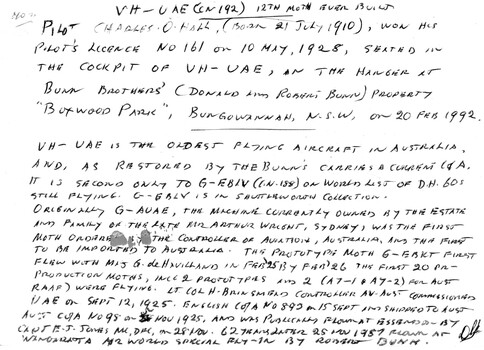 VH-UAE (CN 192) 12TH MOTH EVER BUILT
PILOT CHARLES O. HALL, (BORN 21 JULY 1910), WON HIS
PILOT'S LICENCE NO 161 ON 10 MAY, 1928, SEATED IN
THE COCKPIT OF VH-UAE, AN THE HANGER AT
BUNN BROTHERS' (DONALD AND ROBERT BUNN) PROPERTY
"BOXWOOD PARK", BUNGOWANNAH, N.S.W, ON 20 FEB 1992.
VH-UAE IS THE OLDEST FLYING AIRCRAFT IN AUSTRALIA,
AND, AS RESTORED BY THE BUNN'S CARRIES A CURRENT CofA.
IT IS SECOND ONLY TO G-EBLV (C.N. 188) ON WORLD LIST OF D.H. 60s
STILL FLYING. G-EBLV IS IN SHUTTLEWORTH COLLECTION.
ORIGINALLY G-AUAE, THE MACHINE CURRENTLY OWNED BY THE ESTATE
AND FAMILY OF THE LATE MR ARTHUR WRIGHT, SYDNEY, WAS THE FIRST
MOTH ORDERED BY THE CONTROLLER OF AVIATION, AUSTRALIA, AND THE FIRST
TO BE IMPORTED TO AUSTRALIA. THE PROTOTYPE MOTH G-EBKT FIRST
FLEW WITH MAJ G. deHAVILLAND IN FEB 25 BY FEB 26 THE FIRST 20 PRE-
PRODUCTION MOTHS, INCL 2 PROTOTYPES AND 2 (A7-1 & A7-2) FOR AUST
RAAF) WERE FLYING. LT COL H. BRINSMEAD CONTROLLER AV. AUST COMMISSIONED
UAE ON SEPT 12, 1925. ENGLISH CofA NO 892 ON 15 SEPT AND SHIPPED TO AUST
AUST CofA NO 95 ON NOV 1925, AND WAS PUBLICLY FLOWN AT ESSENDON BY
CAPT E.T. JONES MC, DFC, ON 25 NOV. 62 YEARS LATER 25 NOV 1987 FLOWN AT
WANGARATTA AIR WORLD SPECIAL FLY-IN BY ROBERT BUNN.